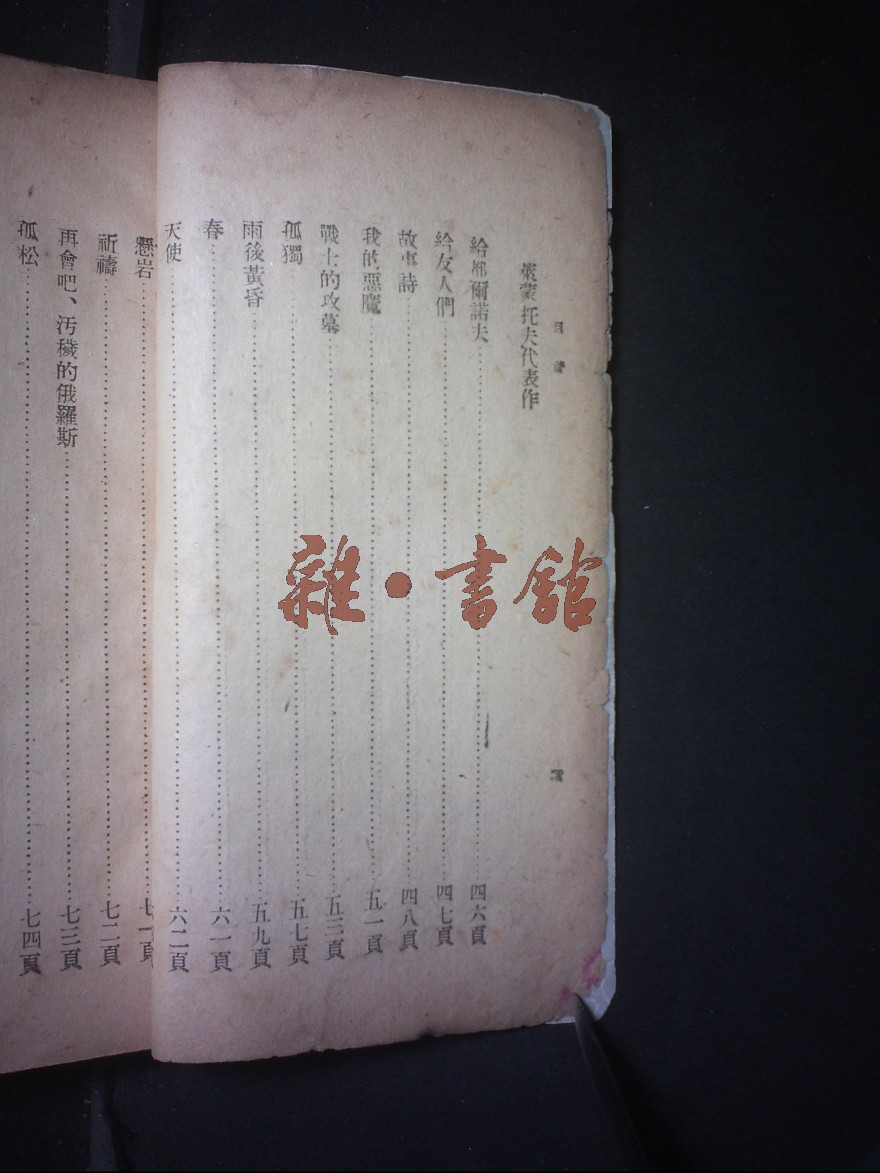 目
萊蒙托夫代表作
給那爾諾夫…………四六頁
給友人們…………四七頁
故事詩…………四八頁
我的惡魔…………五一頁
戰士的坟墓…………五三頁
孤獨…………五七頁
雨後黃昏…………五九頁
春…………六一頁
天使…………六二頁
懸岩…………七一頁
祈禱…………七二頁
再會吧、汚穢的俄羅斯…………七三頁
孤松…………七四頁
雜·書館